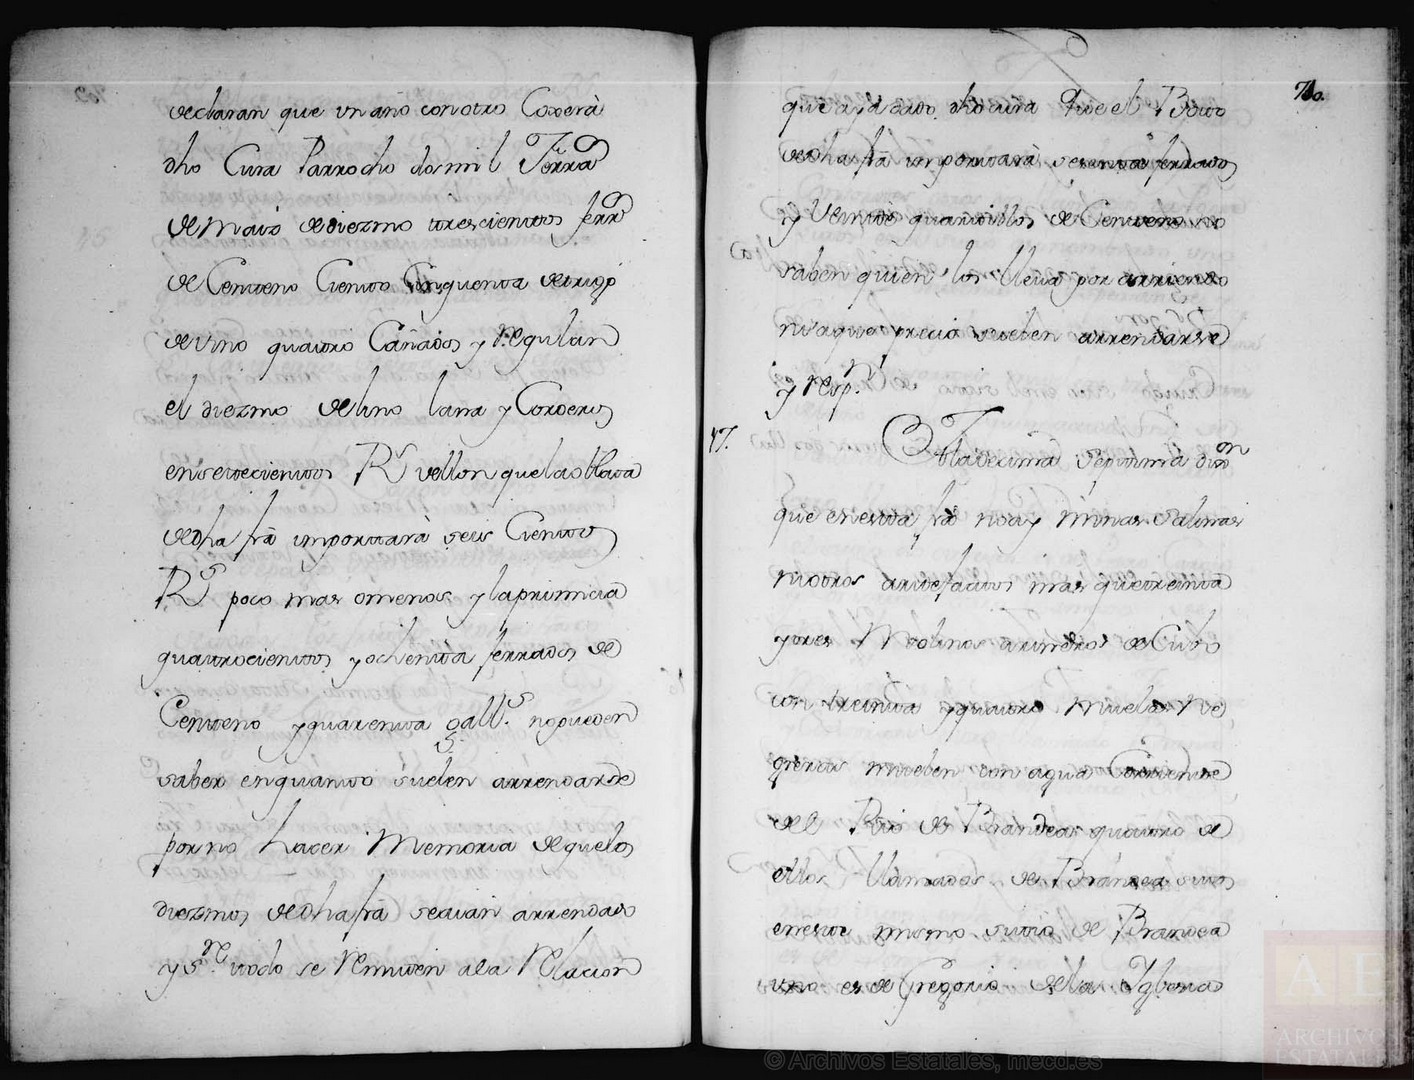 declaran que un año con otro Coxerà
dho Cura Parrocho dos mil Ferra^s
de maiz de diezmo trescientos ferr^s
de Centeno Ciento Cinquenta de trigo
de vino quatro Cañados y regulan
el diezmo de lino lana y Corderos
en setecientos R^s vellon que las Obbata
de dha frã importarà seis Cientos
R^s poco mas o menos y la primicia
quatrocientos y ochenta ferrados de
Centeno y quarenta gall^s. no pueden
saber en quanto suelen arrendarse
por no hacer Memoria de que los
diezmos de dha frã se aian arrendado
y s^re. todo se remiten a la relacion
710.
que aya dado dho cura que el Voto
de dha frã importarà sesenta ferrados
y veinte quartillos de Centeno no
saben quien los lleva por arriendo
ni a que precio suelen arrendarse
y resp^n.
17. A la decima septima dix^on
que en esta frã no ay minas salinas
ni otros artefactos mas que treinta
y tres Molinos arineros de Cubo
con treinta y quatro muelas ne
greras muelen con agua Corriente
del Rio de Brandeas quatro de
ellos llamados de Brandea sitos
en este mismo sitio de Brandea
uno es de Gregorio de las Iglesias
AE
ARCHIVOS
ESTATALES
© Archivos Estatales, mecd.es